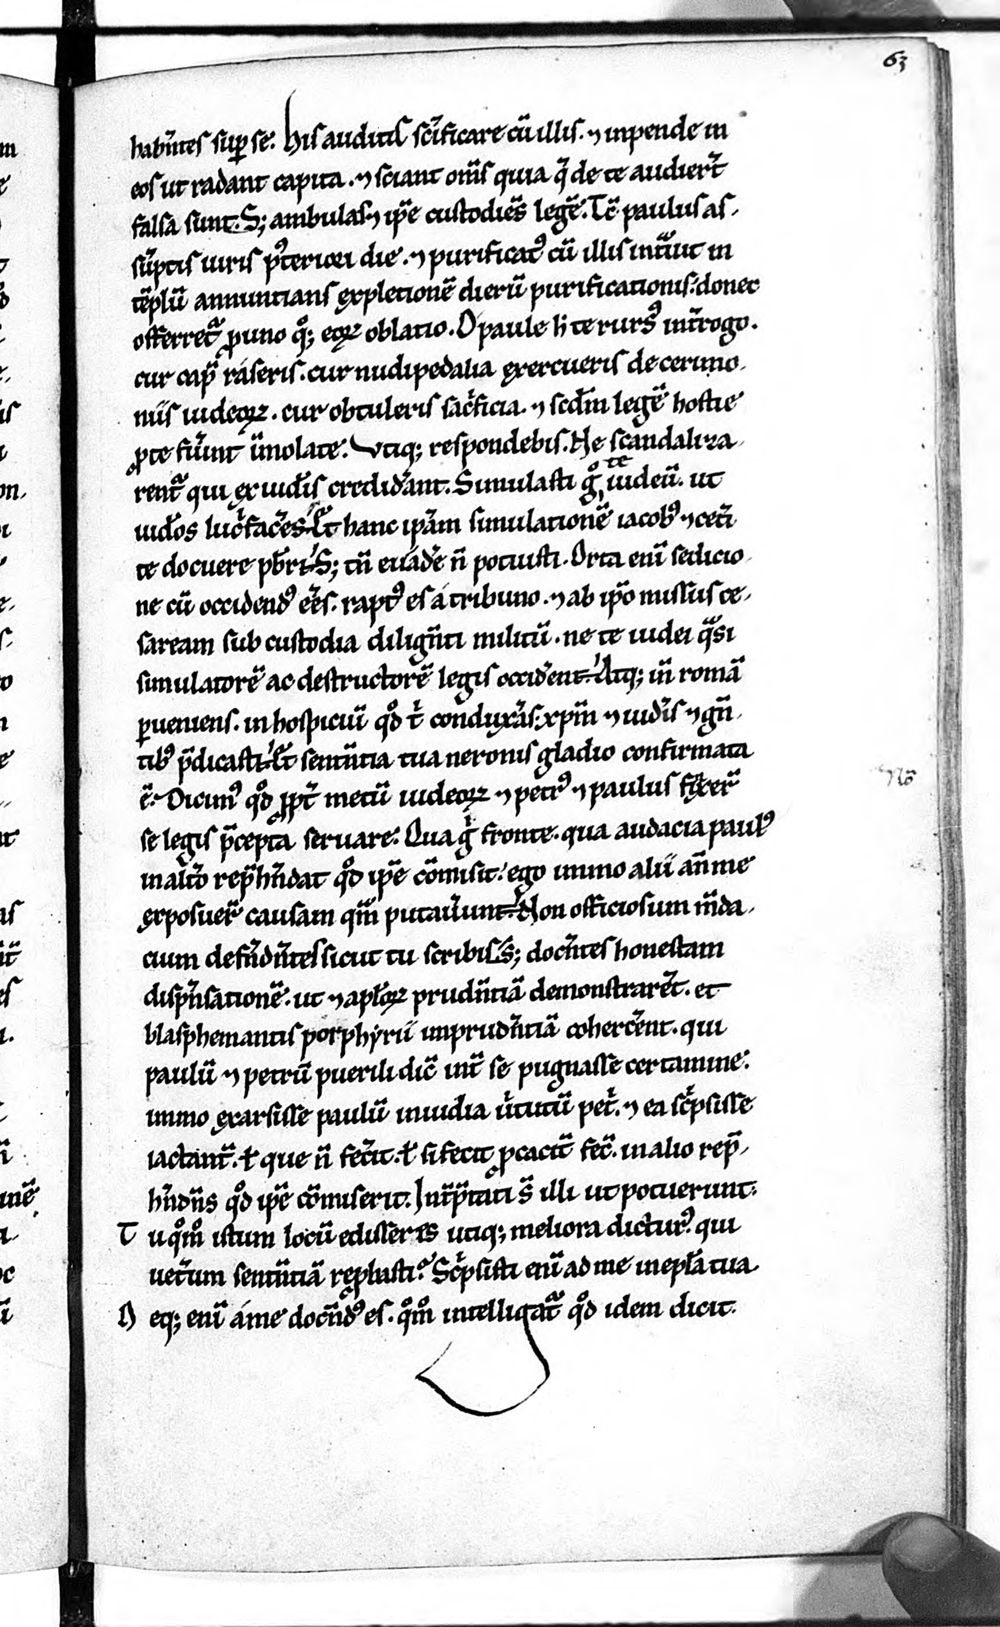 63
hab̃ntes sup se. his auditis scĩficare cũ illis. ⁊ inpende in
eos ut radant capita. ⁊ sciant om̃s quia q̃ de te audier̃t
falsa sunt. S; ambulas ⁊ ip̃e custodiẽs legẽ. Tc̃ paulus as-
sũptis uiris p̾tericei die. ⁊ purificat᷒ cũ illis int̃uit in
tẽplũ annuntians expletionẽ dierũ purificationis. donec
offerret᷑ ꝓ uno q̊; eoꝝ oblatio. O paule h̃ te rurs᷒ int̃rogo.
cur cap̃ raseris. cur nudipedalia exercueris de cerimo-
niis iudeoꝝ. cur obtuleris sac̃ficia. ⁊ scd̃m legẽ hostie
ꝓ te fũunt ĩmolate. Vtiq; respondebis. Ne scandaliza-
rent᷑ qui ex iud̃is credid̃ant. Simulasti g̊ te iudeũ. ut
iud̃os luc̃faceres. Et hanc ip̃am simulationẽ iacob᷒ ⁊ cet̃i
te docuere pb̃ri. S; tñ euad̃e ñ potuisti. Orta eni᷑ sedicio-
ne cũ occidend᷒ eẽs. rapt᷒ es a tribuno. ⁊ ab ip̃o missus ce-
saream sub custodia dilig̃nti militũ. ne te iudei q̃si
simulatorẽ ac destructorẽ legis occid̃ent. Atq; iñ romã
ꝑueniens. in hospiciũ qd̊ t̃ conduxãs. xp̃m ⁊ iud̃is ⁊ gñ-
tib᷒ p̃dicasti. Et sentñtia tua neronis gladio confirmata
ẽ. Dicim᷒ qd̊ ꝓpt̃ metũ iudeoꝝ ⁊ petr᷒ ⁊ paulus fixer̃
se legis p̃cepta seruare. Qua g̃ fronte. qua audacia paul᷒
in alt̃o rep̃hñdat qd̊ ip̃e cõmisit. ego immo alii añ me
exposuer̃ causam qm̃ putauĩunt. Non officiosum m̃da-
cium defñdñtes sicut tu scribis. S; docñtes honestam
dispñsationẽ. ut ⁊ apl̃oꝝ prudñtiã demonstrarẽt. et
blasphemantis porphyrii imprudñtiã cohercẽnt. qui
paulũ ⁊ petrũ puerili dic̃ int̃ se pugnasse certamine.
immo exarsisse paulũ inuidia ũtutũ pet̃. ⁊ ea sc̃psisse
iactant̃. ł que ñ fec̃it. ł si fecit ꝓcacit̃ fec̃. in alio rep̃-
hñdñs qd̊ ip̃e cõmiserit. Int̃p̃tati s̃ illi ut potuerunt.
T u q̊m̊ istum locũ edisseres utiq; meliora dictur᷒. qui
uet̃um sentñtiã reꝓbasti. Sc̃psisti eni᷑ ad me in epl̃a tua
N eq; eni᷑ a me docñd᷒ es. q̊m̊ intelligat᷑ qd̊ idem dicit.